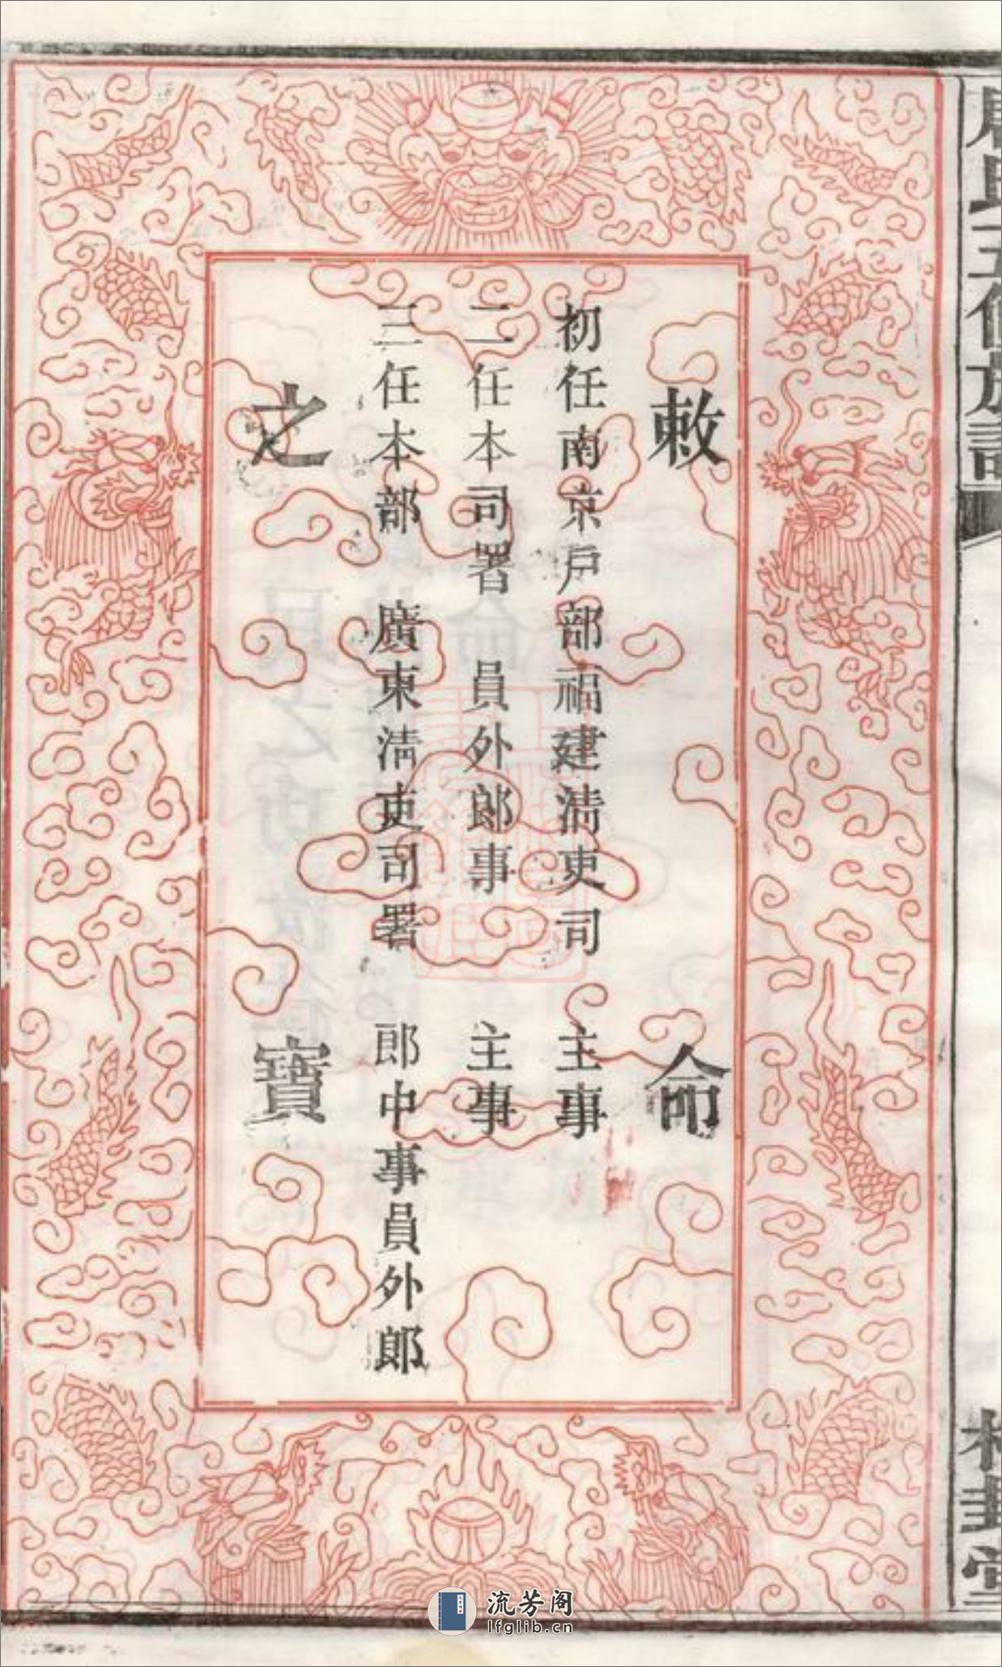 敕命
初任南京戶部福建清吏司 主事
二任本司署 員外郎事 主事
三任本部 廣東清吏司署 郎中事員外郎
之寶
流芳阁
lfglib.cn